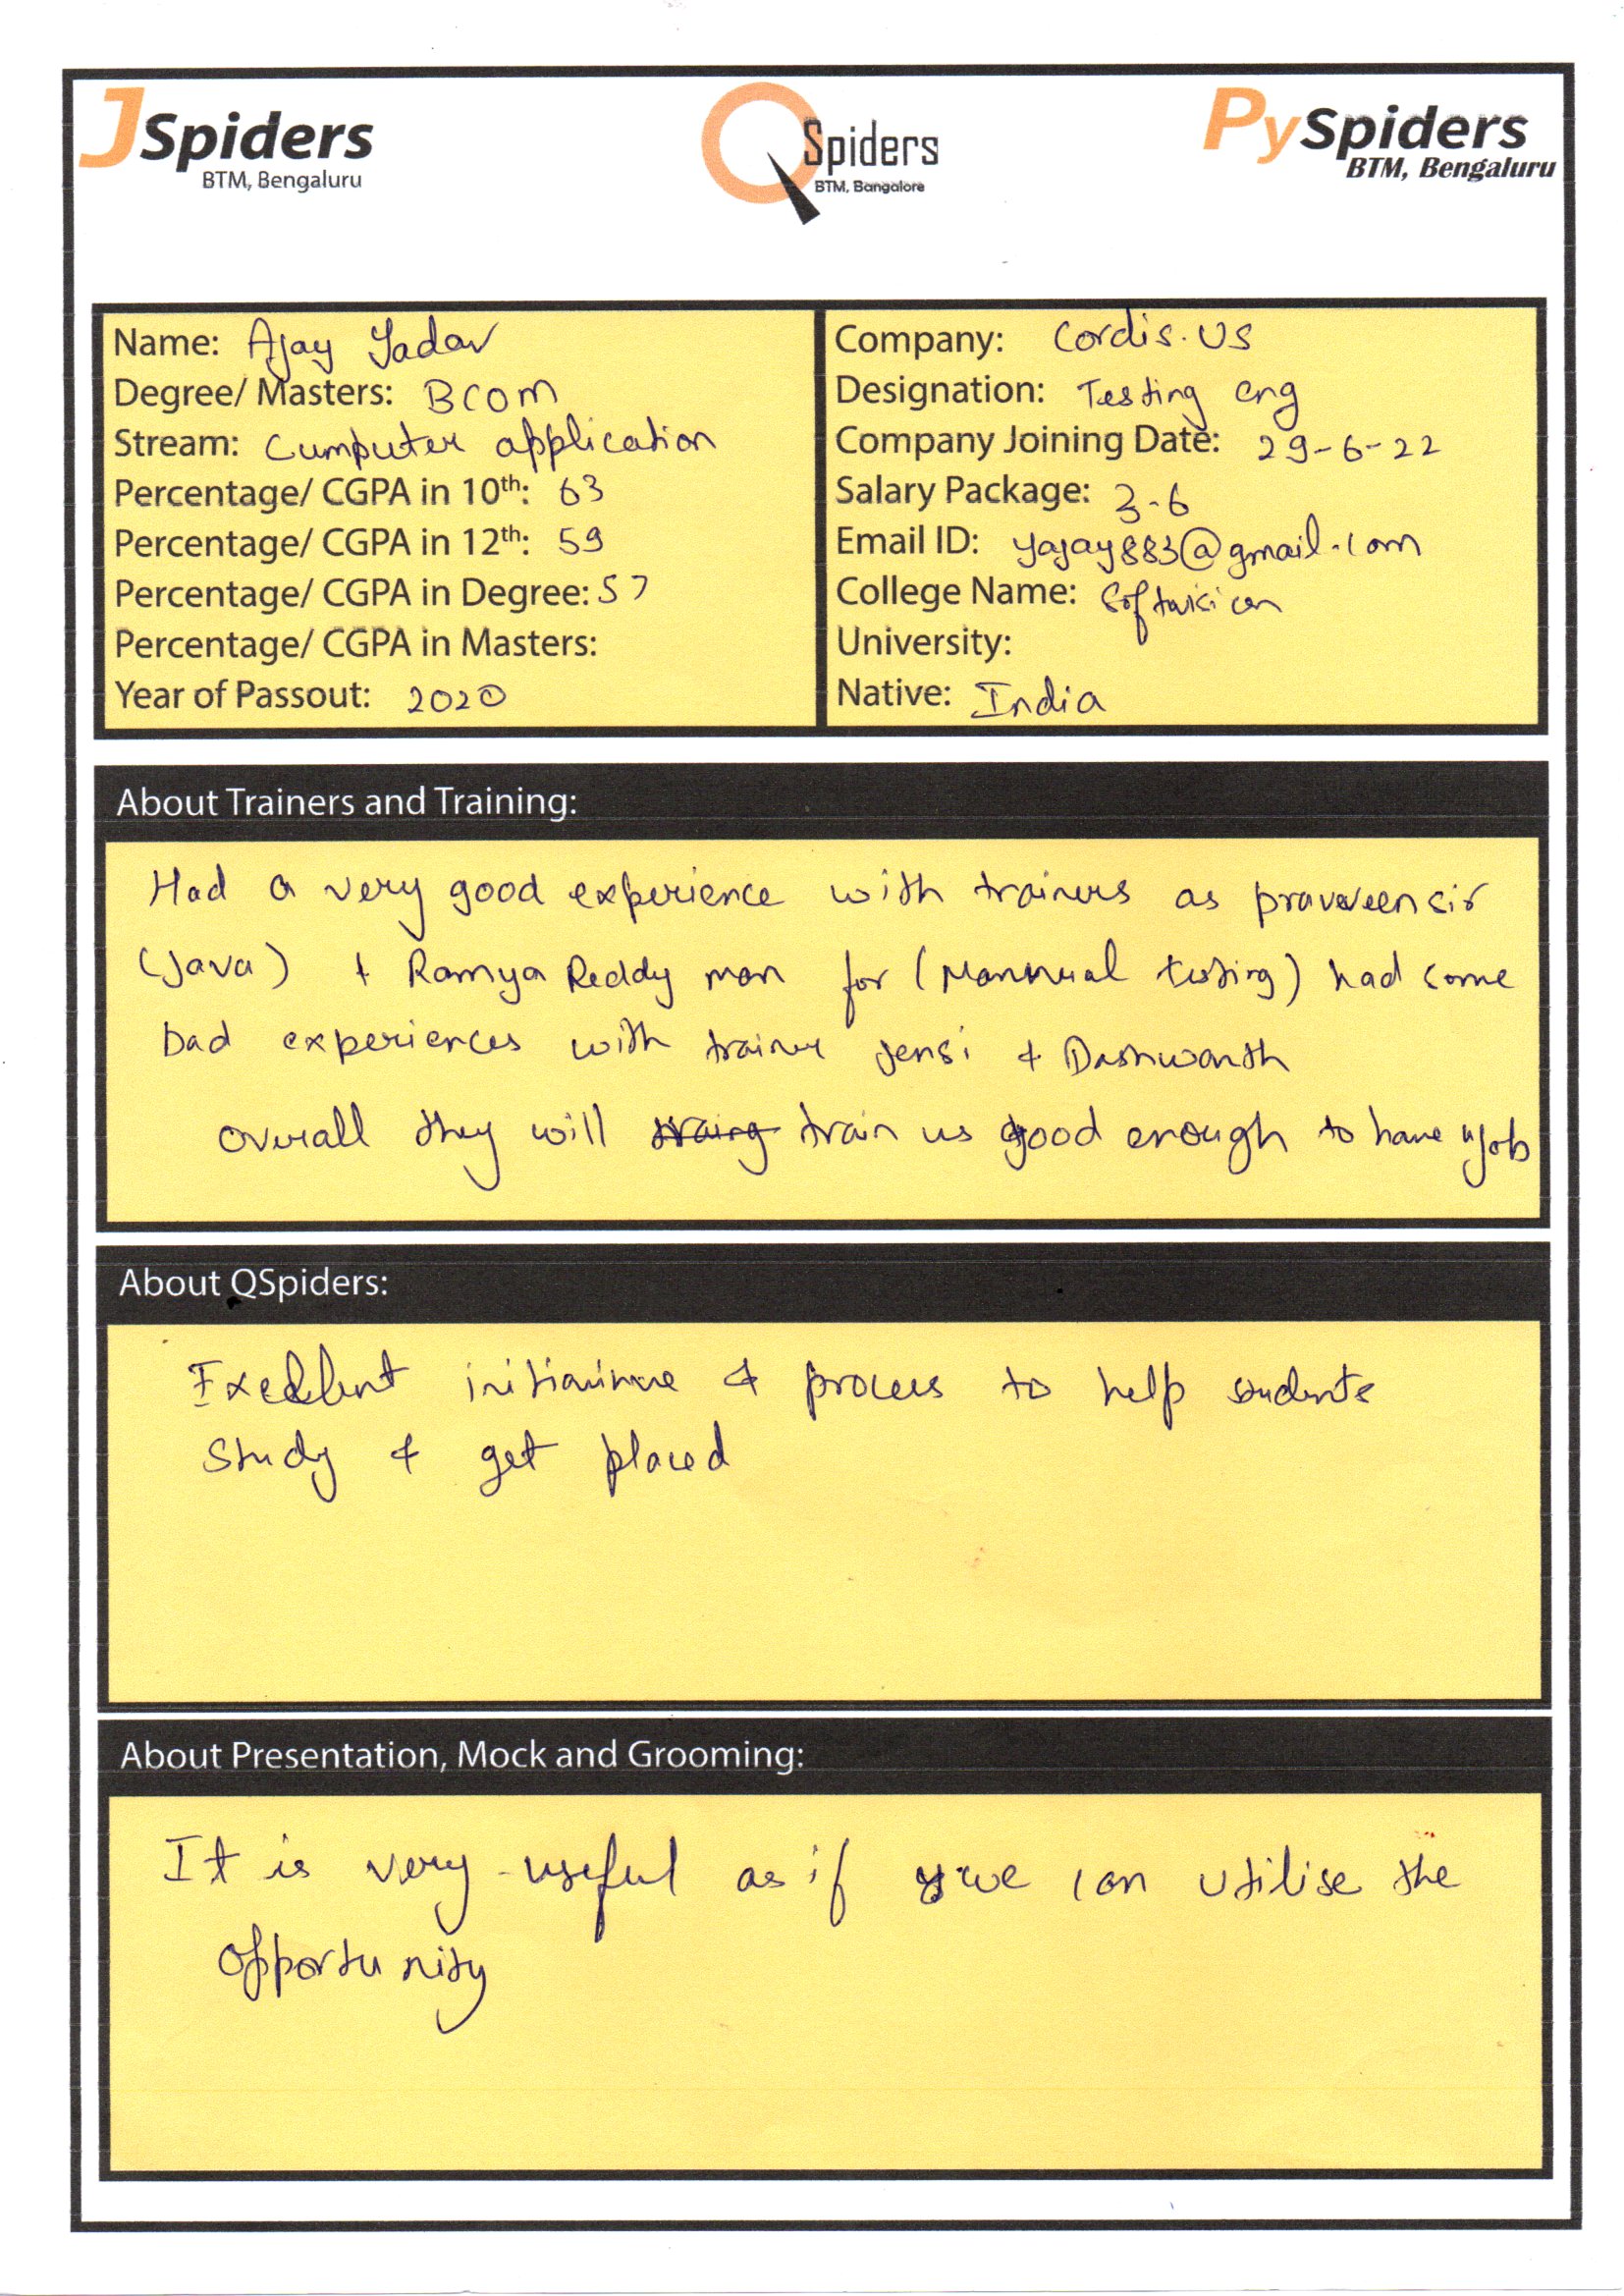 JSpiders
BTM, Bengaluru
QSpiders
BTM, Bangalore
PySpiders
BTM, Bengaluru
Name: Ajay Yadav
Degree/ Masters: BCOM
Stream: Cumputer application
Percentage/ CGPA in 10th: 63
Percentage/ CGPA in 12th: 59
Percentage/ CGPA in Degree: 57
Percentage/ CGPA in Masters:
Year of Passout: 2020
Company: Cordis.US
Designation: Testing eng
Company Joining Date: 29-6-22
Salary Package: 3.6
Email ID: yajay883@gmail.com
College Name:
University:
Native: India
About Trainers and Training:
Had a very good experience with trainers as praveen sir
(Java) & Ramya Reddy mam for (Mannual testing) had some
bad experiences with trainer Jensi & Dashwanth
Overall they will train us good enough to have job
About QSpiders:
Excellent & process to help students
Study & get placed
About Presentation, Mock and Grooming:
It is very useful as if we can utilise the
opportunity